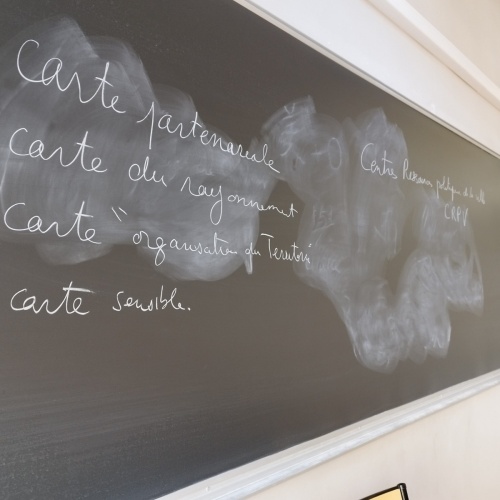 Carte partenariale
Carte du rayonnement
Carte " organisation du Territoire
Carte sensible.
Centres Ressources politique de la ville
CRPV